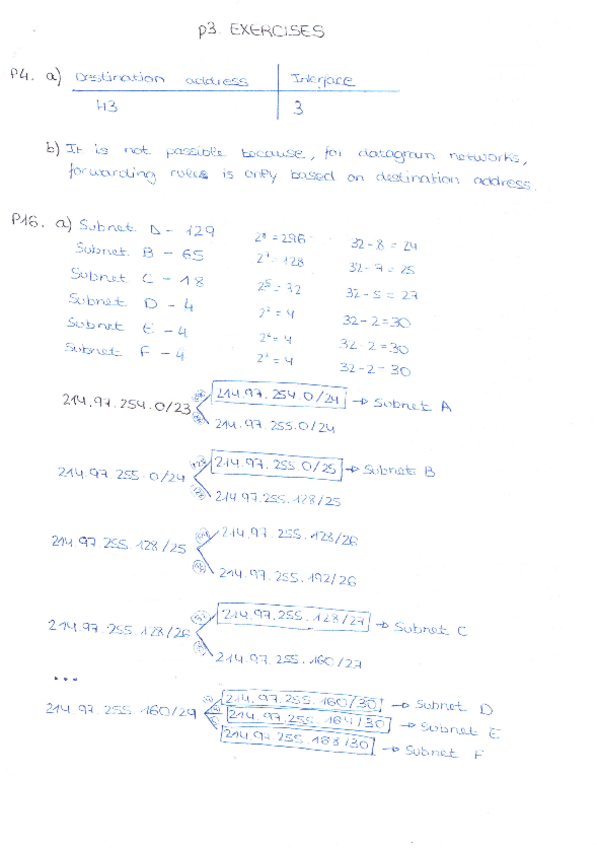 p3. EXERCISES
P4. a) Destination address Interface
H3 3
b) It is not possible because, for datagram networks,
forwarding rules is only based on destination address.
P16. a) Subnet D - 129 2⁸ = 256 32 - 8 = 24
Subnet B - 65 2⁷ = 128 32 - 7 = 25
Subnet C - 18 2⁵ = 32 32 - 5 = 27
Subnet D - 4 2² = 4 32 - 2 = 30
Subnet E - 4 2² = 4 32 - 2 = 30
Subnet F - 4 2² = 4 32 - 2 = 30
214.97.254.0/24 → Subnet A
214.97.254.0/23
214.97.255.0/24
214.97.255.0/25 → Subnet B
214.97.255.0/24
214.97.255.128/25
214.97.255.128/26
214.97.255.128/25
214.97.255.192/26
214.97.255.128/27 → Subnet C
214.97.255.128/26
214.97.255.160/27
...
214.97.255.160/30 → Subnet D
214.97.255.160/29 214.97.255.164/30 → Subnet E
214.97.255.168/30 → Subnet F